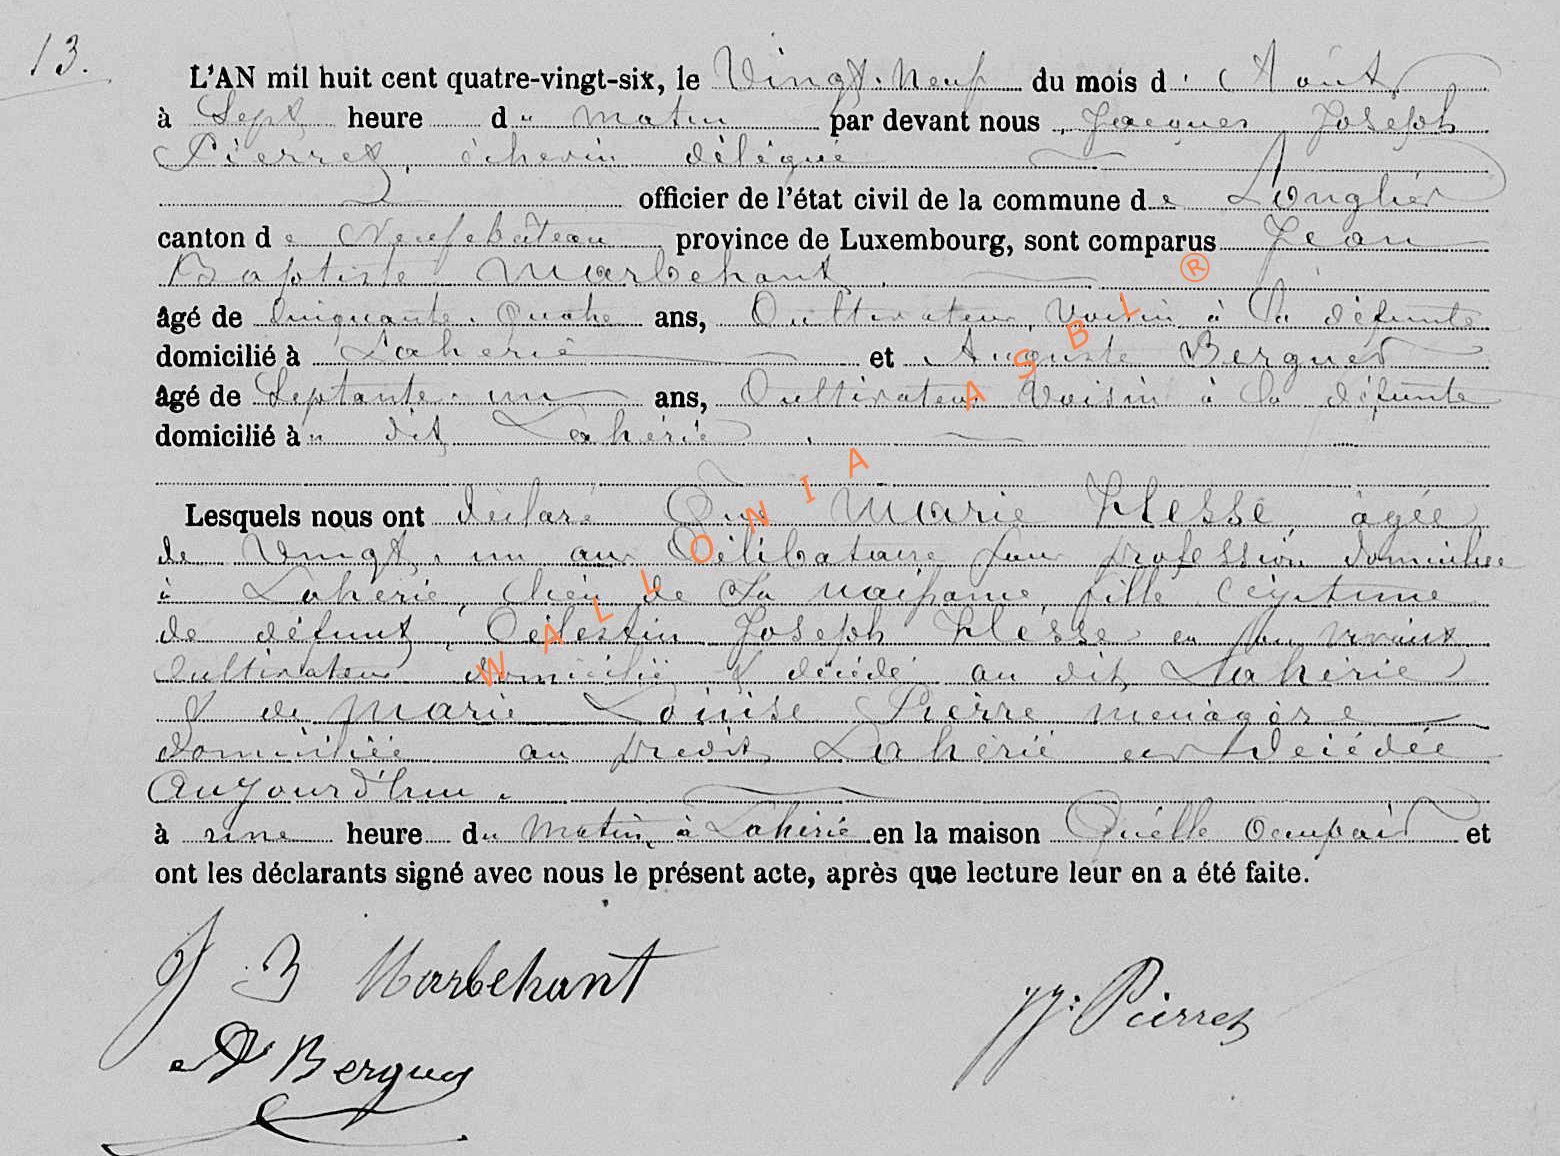 13.
L'AN mil huit cent quatre-vingt-six, le Vingt-Neuf du mois d'Août
à Sept heure du matin par devant nous, Jacques Joseph
Pierret, échevin délégué
officier de l'état civil de la commune de Longlier
canton de Neufchâteau province de Luxembourg, sont comparus Jean
Baptiste Marbehant,
âgé de Cinquante-quatre ans, Cultivateur, Voisin à la défunte
domicilié à Laherie et Auguste Berguet
âgé de Septante-un ans, Cultivateur Voisin à la défunte
domicilié à dit Lahérie,
Lesquels nous ont déclaré Que Marie Hesse, âgée
de Vingt-un ans Célibataire sans profession domiciliée
à Laherie, lieu de Sa naissance, fille légitime
de défunt, Célestin Joseph Hesse en son vivant
Cultivateur domicilié & décédé au dit Lahérie
& de Marie Louise Pierre menagère
domiciliée au predit Lahérié est décédée
Aujourd'hui.
à une heure du Matin, à Lahérié en la maison Qu'elle occupait et
ont les déclarants signé avec nous le présent acte, après que lecture leur en a été faite.
J B Marbehant
JJ: Pierret
A Berguet
WALLONIA ASBL ®